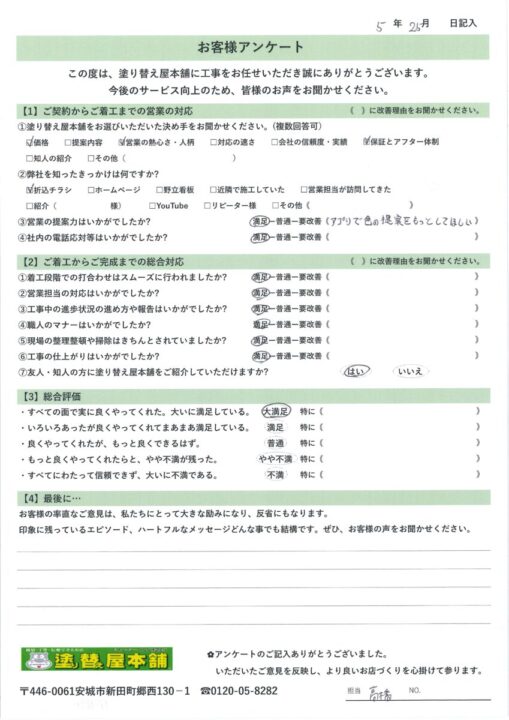 5年 25月 日記入
お客様アンケート
この度は、塗り替え屋本舗に工事をお任せいただき誠にありがとうございます。
今後のサービス向上のため、皆様のお声をお聞かせください。
【1】ご契約からご着工までの営業の対応 ( )に改善理由をお聞かせください。
①塗り替え屋本舗をお選びいただいた決め手をお聞かせください。(複数回答可)
☑価格 □提案内容 ☑営業の熱心さ・人柄 □対応の速さ □会社の信頼度・実績 ☑保証とアフター体制
□知人の紹介 □その他( )
②弊社を知ったきっかけは何ですか?
☑折込チラシ □ホームページ □野立看板 □近隣で施工していた □営業担当が訪問してきた
□紹介( 様) □YouTube □リピーター様 □その他( )
③営業の提案力はいかがでしたか? 満足ー普通ー要改善(アプリで色の提案をもっとしてほしい)
④社内の電話応対等はいかがでしたか? 満足ー普通ー要改善( )
【2】ご着工からご完成までの総合対応 ( )に改善理由をお聞かせください。
①着工段階での打合わせはスムーズに行われましたか? 満足ー普通ー要改善( )
②営業担当の対応はいかがでしたか? 満足ー普通ー要改善( )
③工事中の進歩状況の進め方や報告はいかがでしたか? 満足ー普通ー要改善( )
④職人のマナーはいかがでしたか? 満足ー普通ー要改善( )
⑤現場の整理整頓や掃除はきちんとされていましたか? 満足ー普通ー要改善( )
⑥工事の仕上がりはいかがでしたか? 満足ー普通ー要改善( )
⑦友人・知人の方に塗り替え屋本舗をご紹介していただけますか? はい いいえ
【3】総合評価
・すべての面で実に良くやってくれた。大いに満足している。 大満足 特に( )
・いろいろあったが良くやってくれてまあまあ満足している。 満足 特に( )
・良くやってくれたが、もっと良くできるはず。 普通 特に( )
・もっと良くやってくれたらと、やや不満が残った。 やや不満 特に( )
・すべてにわたって信頼できず、大いに不満である。 不満 特に( )
【4】最後に…
お客様の率直なご意見は、私たちにとって大きな励みになり、反省にもなります。
印象に残っているエピソード、ハートフルなメッセージどんな事でも結構です。ぜひ、お客様の声をお聞かせください。
塗替屋本舗
✿アンケートのご記入ありがとうございました。
いただいたご意見を反映し、より良いお店づくりを心掛けて参ります。
〒446-0061安城市新田町郷西130－1 ☎0120-05-8282
担当 高橋 NO.